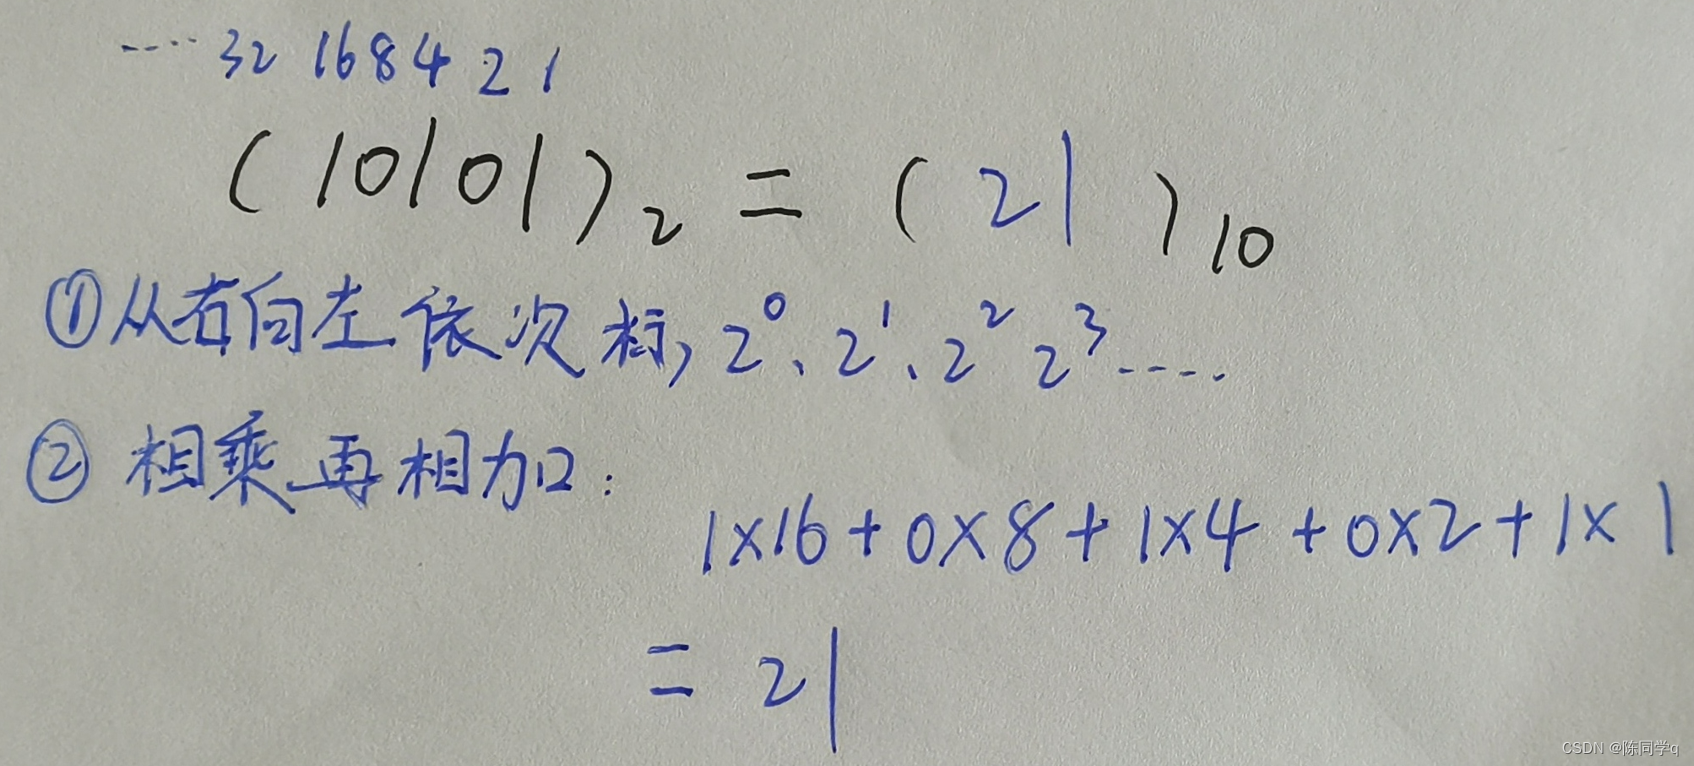 .... 32 16 8 4 2 1
(10101)₂ = (21)₁₀
①从右向左依次标,2⁰、2¹、2² 2³ ....
②相乘再相加:
1×16+0×8+1×4+0×2+1×1
=21
CSDN @陈同学q